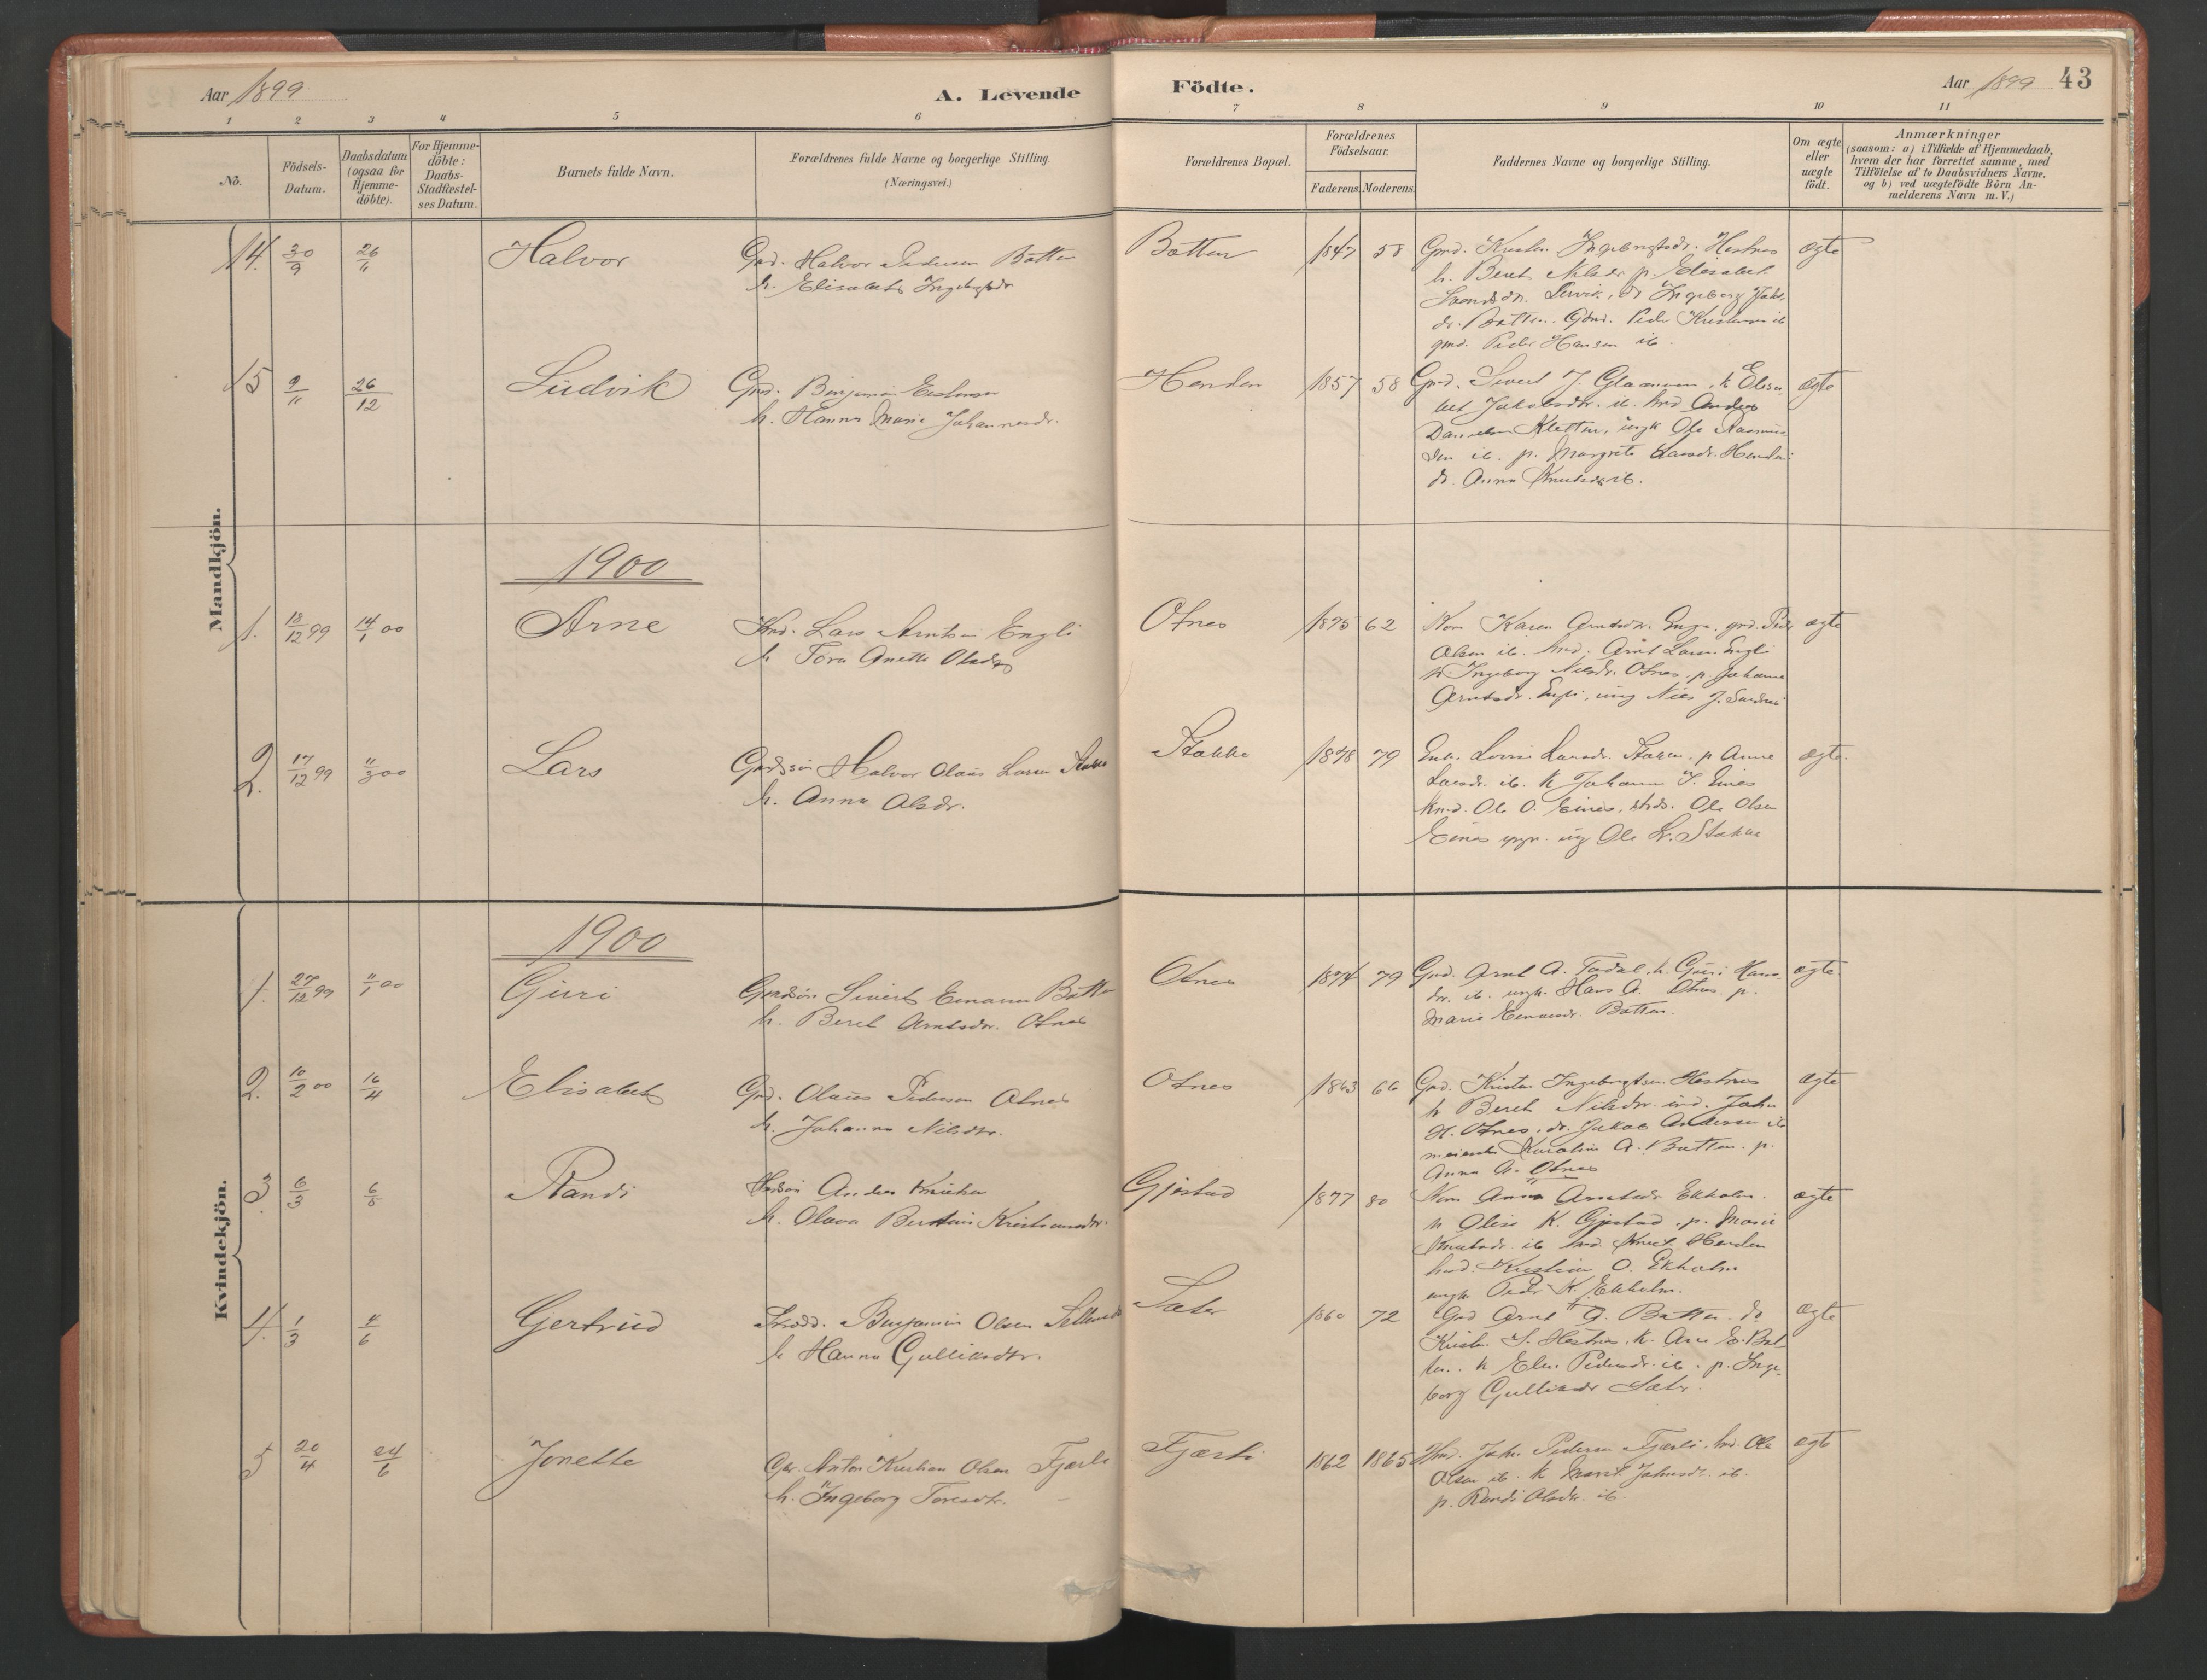 Aar 1899
A. Levende
Födte.
Aar 1899 43
1 2 3 4 5 6 7 8 9 10 11
No.
Födsels-
Datum.
Daabsdatum
(ogsaa for
Hjemme-
döbte).
For Hjemme-
döbte:
Daabs-
Stadfæstel-
ses Datum.
Barnets fulde Navn.
Forældrenes fulde Navne og borgerlige Stilling.
(Næringsvei.)
Forældrenes Bopæl.
Forældrenes
Födselsaar.
Faderens. Moderens.
Faddernes Navne og borgerlige Stilling.
Om ægte
eller
uægte
födt.
Anmærkninger
(saasom: a) i Tilfælde af Hjemmedaab,
hvem der har forrettet samme, med
Tilföielse af to Daabsvidners Navne,
og b) ved uægtefödte Börn An-
melderens Navn m. V.)
Mandkjön.
14. 30/9 26/11 Halvor
Grd. Halvor Pedersen Botten
h. Elisabet Ingebrgtsdr
Botten 1847 58
Gmd. Kristen Ingebrigtsdr. Hestnes
h. Beret Nilsdr p. Elisabet
dr. Botten. Gmd. Peder Kristensen ib
gmd. Peder Hansen ib.
ægte
15 9/11 26/12 Ludvik
Grd. Benjamin
h. Hanna Marie Johannesdr.
Henden 1857 58
Gmd. Sivert J. k Elisa-
bet Jakobsdtr. ib. Anders
Danielsen Kletten, ungk Ole Rasmus-
sen ib. p. Margrete Larsdr. Henden
do Anna Knutsdr ib.
ægte
1900
1. 18/12 99 14/1 00 Arne
Lars Arntsen Engli
h. Tora Anette Olsdr
Otnes 1875 62
Kone Karen Arntsdtr. Enge. grd. Peder
Olsen ib. Arnt Larsen Engli
k Ingeborg Nilsdr. Otnes. p. Johanna
Arntsdr. Engli, ung Nils J.
ægte
2. 17/12 99 11/3 00 Lars
Grdssön Halvor Olaus Larsen Stakke
h. Anna Olsdr.
Stakke 1878 79
Enk. Lovise Larsdr. Stakken, p Anne
Larsdr. ib. k Johanna I. Eines
Kmd. Ole O. Eines, Ole Olsen
Eines ung Ole L. Stakke
ægte.
Kvindekjön.
1900
1. 27/12 99 11/1 00 Guri
Grdsön Sivert Botten
h. Beret Arntsdr. Otnes
Otnes 1874 79
Grd. Arnt A. Todal. h. Guri Hans-
dr. ib. ungk. Hans A. Otnes p.
Marie Botten.
ægte
2. 10/2 00 16/4 Elisabet
Grd. Olaus Pedersen Otnes
h. Johanna Nilsdtr.
Otnes 1863 66
Grd. Kristen Ingebrigtsen Hestnes
h Beret Nilsdtr. ind. John
H. Otnes, dr. Jakob Andersen ib
Karoline A. Botten. p.
Anna A. Otnes
ægte
3. 6/3 6/5 Randi
Anders
h. Olava Kristiansdtr.
Gjestad 1877 80
Kone Anna Arntsdr. Ekholm.
k Olise K. Gjestad, p. Marie
Knutsdr. ib Knut Henden
Kristian O. Ekholm
ungk Peder K. Ekholm.
ægte
4. 1/3 4/6 Gertrud
Benjamin Olsen
h Hanna Gulliksdtr.
Sæter 1860 72
Grd Arnt G. Botten. do
Kristen I. Hestnes. k. Ane E. Bot-
ten. k Elen Pedersdr. ib. p. Inge-
borg Gulliksdr Sæter.
ægte
5 20/4 24/6 Jonette
Gbr. Anton Kristian Olsen Fjærli
h. Ingeborg Toresdtr.
Fjærli 1862 1865
John Pedersen Fjærli, Ole
Olsen ib. k Marit Johnsdr. ib.
p. Randi Olsdtr. ib.
ægte